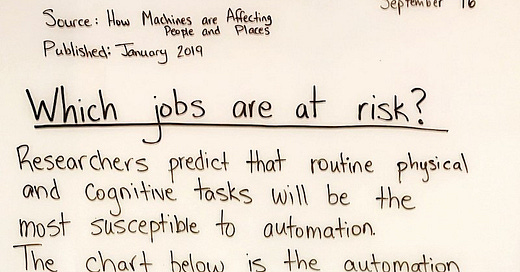 September 16
Source: How Machines are Affecting
People and Places
Published: January 2019
Which jobs are at risk?
Researchers predict that routine physical
and cognitive tasks will be the
most susceptible to automation.
The chart below is the automation